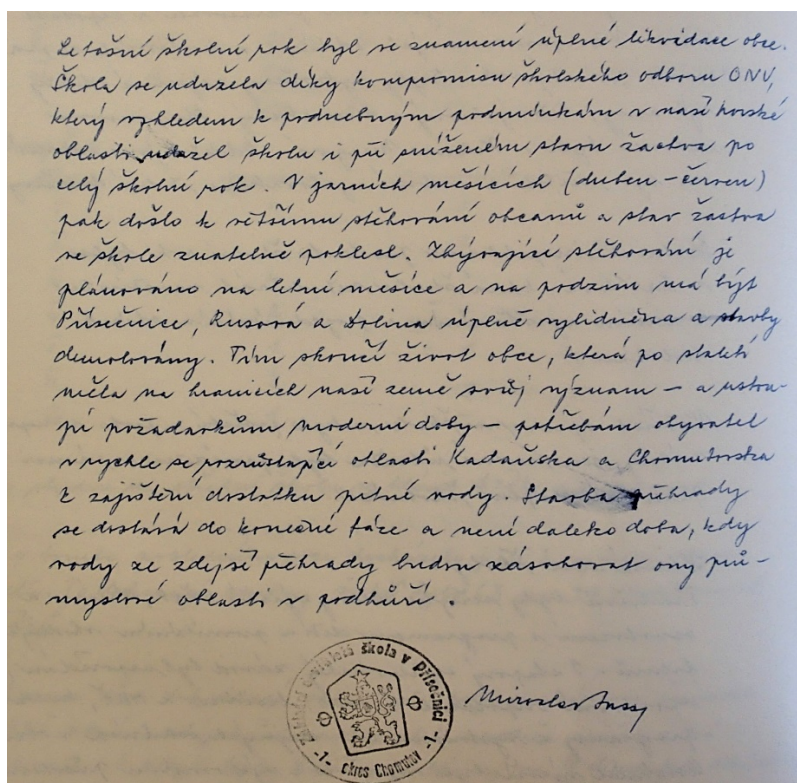 Letošní školní rok byl ve znamení úplné likvidace obce.
Škola se udržela díky kompromisu školského odboru ONV,
který vzhledem k podnebným podmínkám v naší horské
oblasti udržel školu i při sníženém stavu žactva po
celý školní rok. V jarních měsících (duben – červen)
pak došlo k většímu stěhování občanů a stav žactva
ve škole znatelně poklesl. Zbývající stěhování je
plánováno na letní měsíce a na podzim má být
Přísečnice, Rusová a Dolina úplně vylidněna a stavby
demolovány. Tím skončí život obce, která po staletí
měla na hranicích naší země svůj význam – a ustou-
pí požadavkům moderní doby – potřebám obyvatel
v rychle se rozrůstající oblasti Kadaňska a Chomutovska
k zajištění dostatku pitné vody. Stavba přehrady
se dostává do konečné fáze a není daleko doba, kdy
vody ze zdejší přehrady budou zásobovat ony prů-
myslové oblasti v podhůří.
Základní devítiletá škola v Přísečnici
-1- okres Chomutov -1-
Miroslav